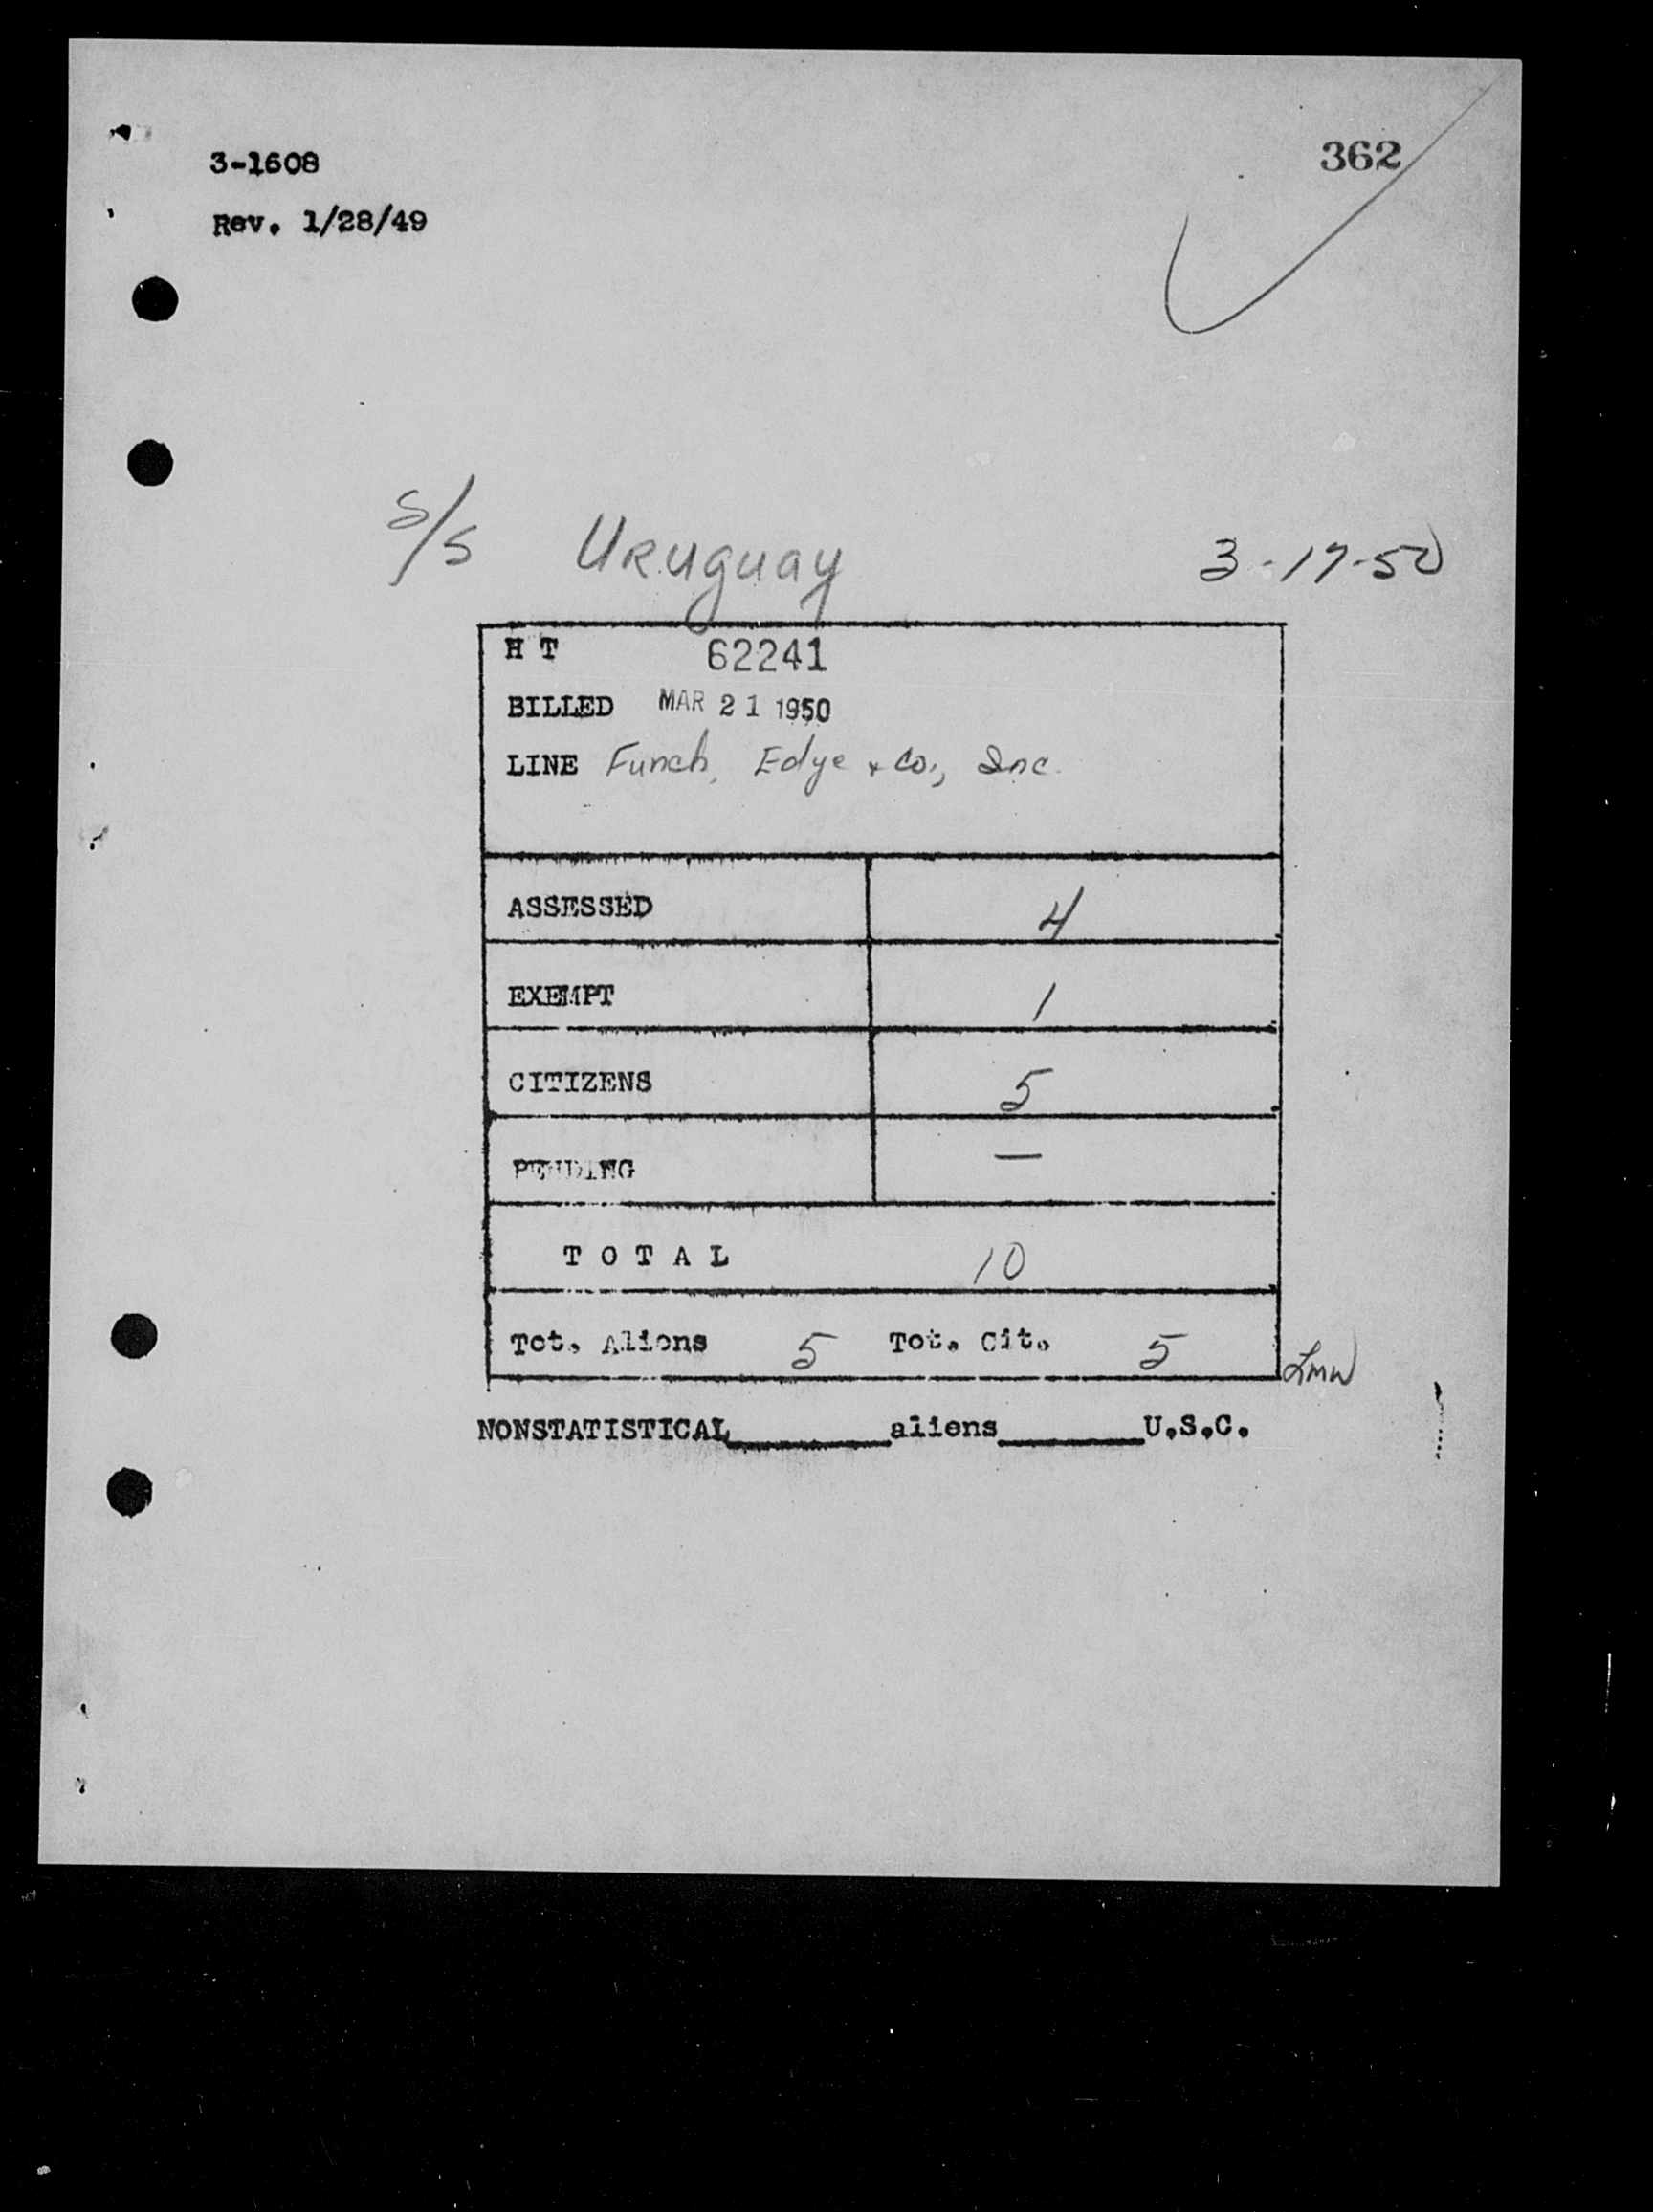 3-1608
362
Rev. 1/28/49
S/S Uruguay 3-17-50
H T 62241
BILLED MAR 21 1950
LINE Funch, Edye & Co., Inc.
ASSESSED 4
EXEMPT 1
CITIZENS 5
PENDING —
T O T A L 10
Tot. Aliens 5 Tot. Cit. 5
LMW
NONSTATISTICAL________aliens________U.S.C.